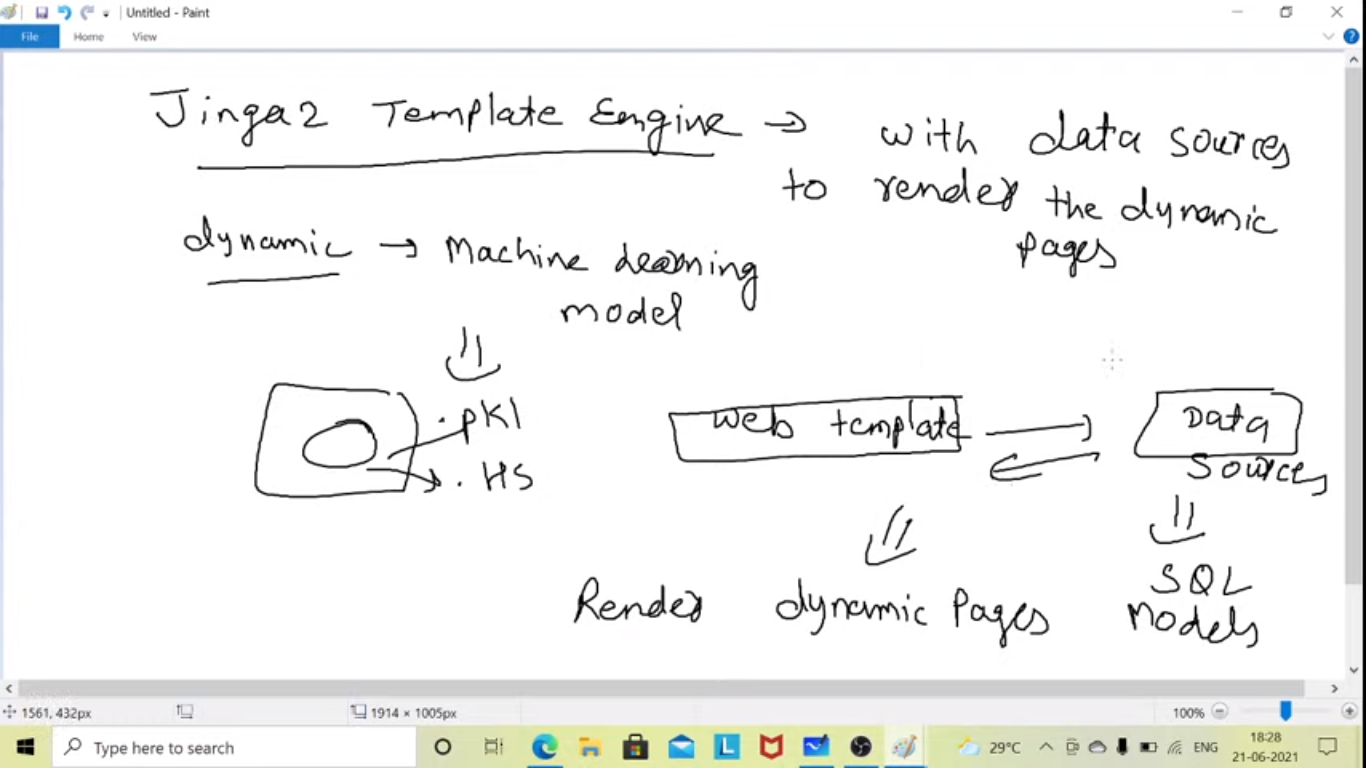 Untitled - Paint
File Home View
Jinga2 Template Engine → with data sources
to render the dynamic
pages
dynamic → Machine learning
model
.pkl
.H5
Web template
Data
Sources
Render dynamic Pages
SQL
Models
1561, 432px
1914 × 1005px
100%
Type here to search
29°C
ENG
18:28
21-06-2021